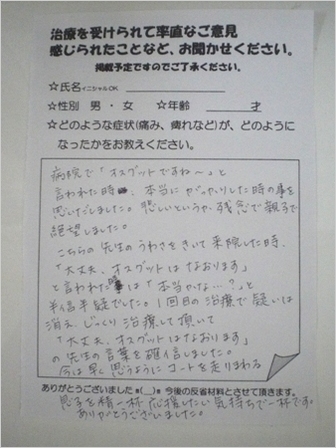 治療を受けられて率直なご意見
感じられたことなど、お聞かせください。
掲載予定ですのでご了承ください。
☆氏名イニシャルOK
☆性別 男・女 ☆年齢 才
☆どのような症状(痛み、痺れなど)が、どのように
なったかをお教えください。
病院で「オスグットですね〜」と
言われた時、本当にがっかりした時の事を
思いだしました。悲しいというか、残念で親子で
絶望しました。
こちらの先生のうわさをきいて来院した時、
「大丈夫、オスグットはなおります」
と言われた時は「本当かな…?」と
半信半疑でした。1回目の治療で疑いは
消え、じっくり治療して頂いて
「大丈夫、オスグットはなおります」
の先生の言葉を確信しました。
今は早く思うようにコートを走りまわる
ありがとうございました m(__)m 今後の反省材料とさせて頂きます。
息子を精一杯応援したい気持ちで一杯です。
ありがとうございました。